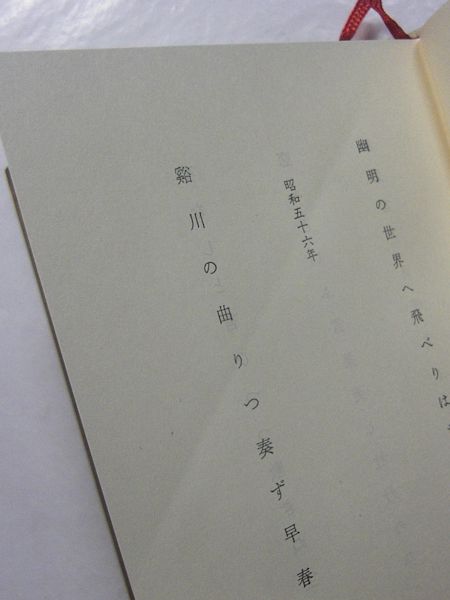 幽明の世界へ飛べりは
昭和五十六年
谿川の曲りつ奏ず早春